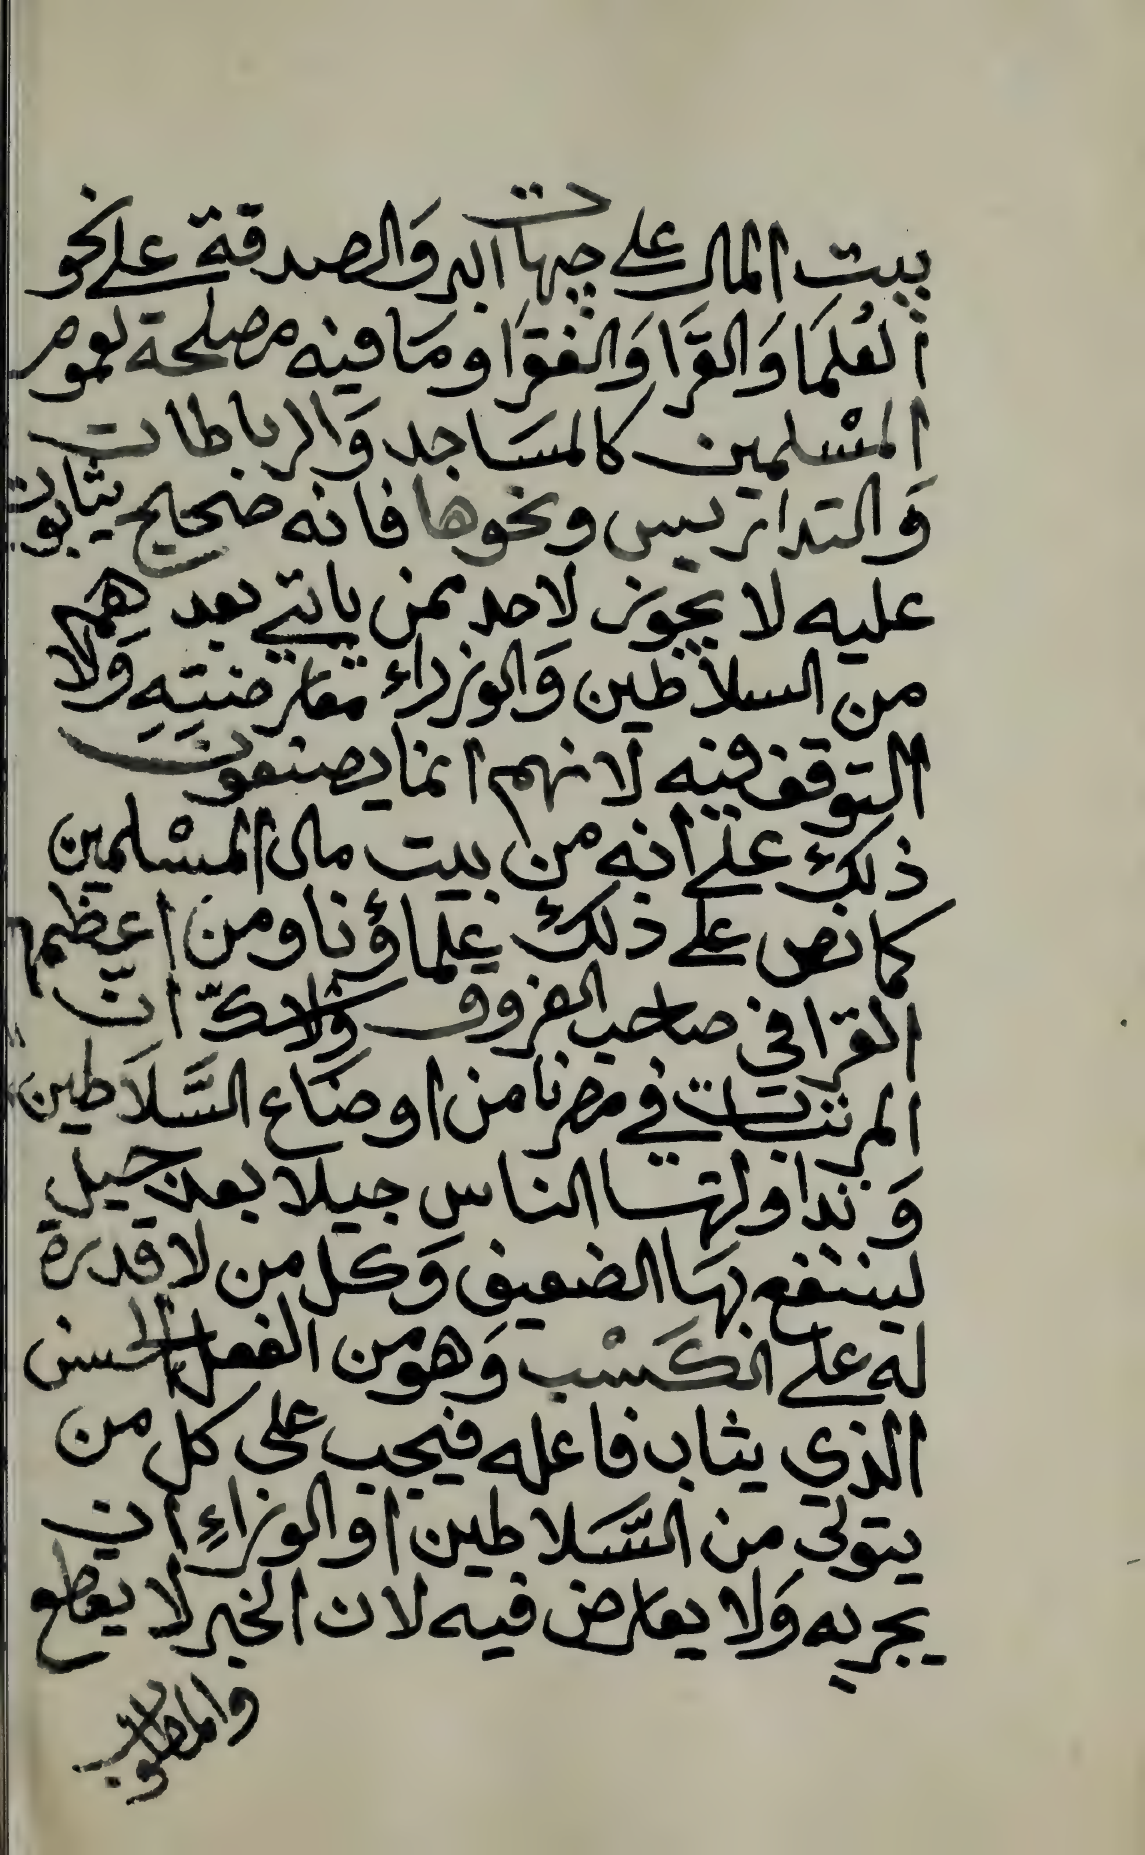 بيت المال على جهات البر والصدقة على نحو
العُلمَا وَالقرَّا وَالفقرَا ومَا فيه مصلحة لعموم
المسْلمين كالمسَاجد وَالرباطات
وَالتداريس ونحوها فانه صحيح يثابون
عليه لا يجوز لاحد ممن ياتي بعد هِم
من السلاطين وَالوزراء معارضتِهِ وَلا
التوقف فيه لانهم انما يصنعون
ذلك على انه من بيت مال المسْلمين
كما نص على ذلك علماؤنا ومن اعظمهم
القرافي صاحب الفروق وَلا شكّ ان
المرتبات في مصرنا من اوضَاع السَّلَاطين
وَتداولتها الناس جيلا بعد جيل
لينتفع بهَا الضعيف وَكل من لا قدرة
له على الكَسْب وَهو من الفعل الحسن
الذي يثاب فاعله فيجب على كل من
يتولى من السَّلاطين او الوزراءِ ان
يجريه وَلا يعارض فيه لان الخير لا يقطع
والمطلوب